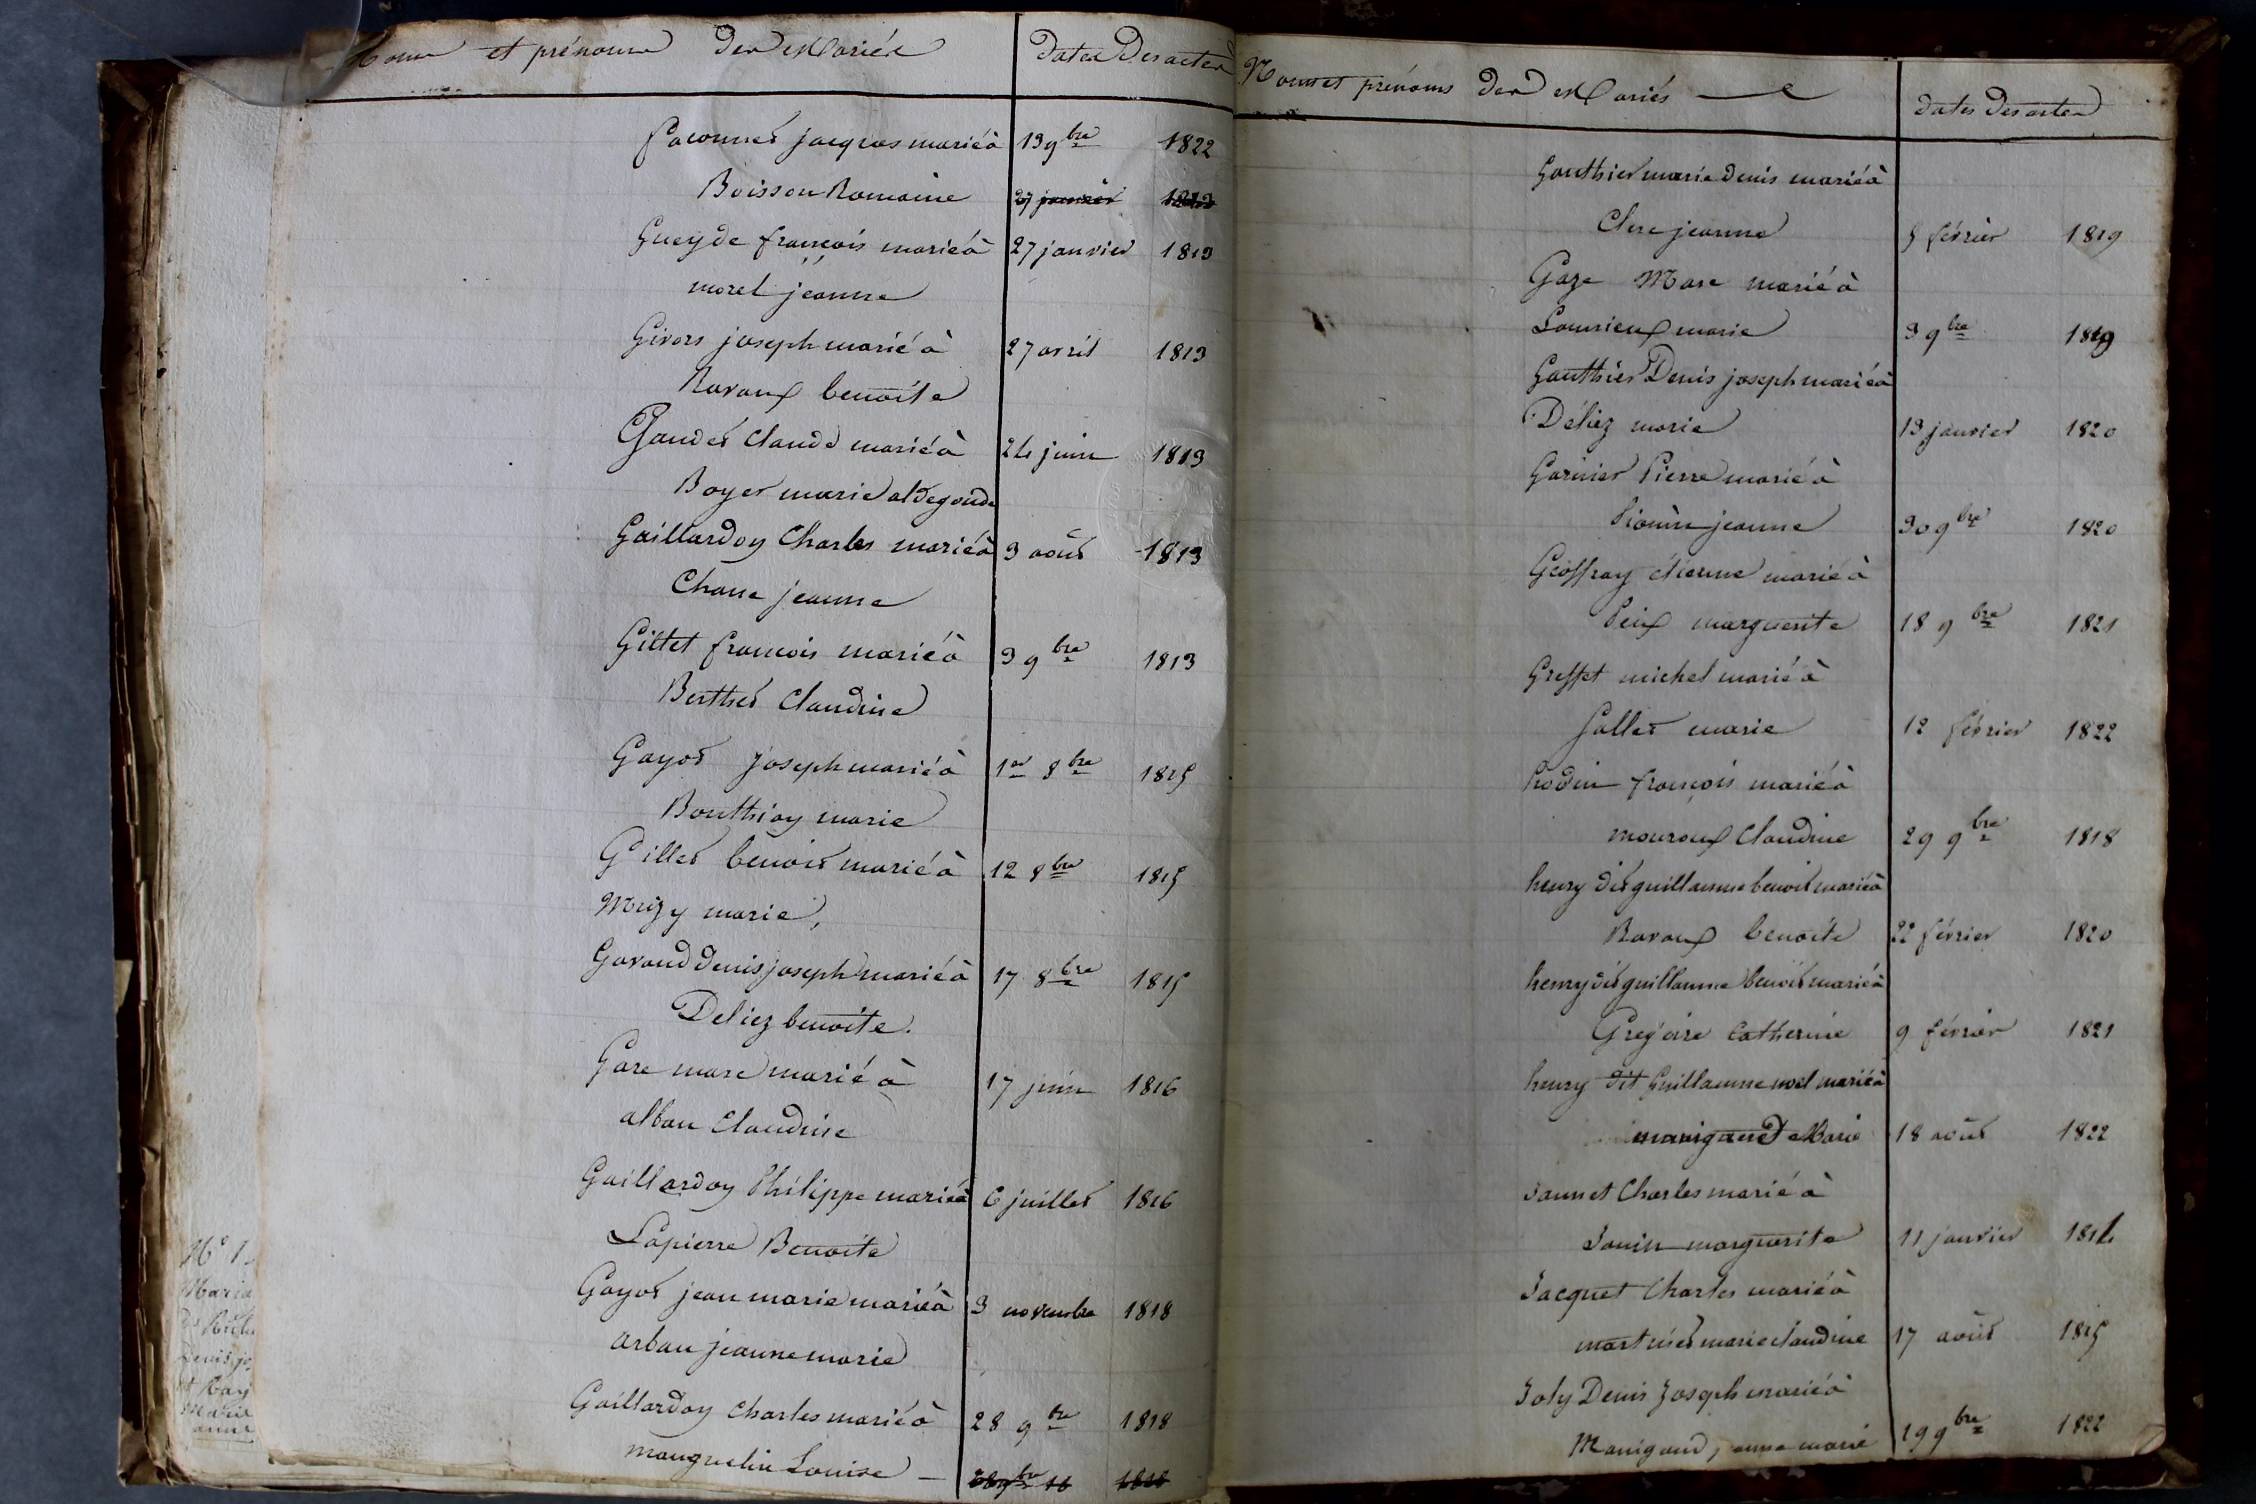 Noms et prénoms des Mariés Dates Des actes
faconnet jacques marié à 13 9bre 1822
Boisson Romaine 27 janvier
Gueyde françois marié à 27 janvier 1813
morel jeanne
Givors joseph marié à 27 avril 1813
Ravoux benoite
Gaudet Claude marié à 24 juin 1813
Boyer marie aldegonde
Gaillardoy Charles marié à 3 août 1813
jeanne
Gillet françois marié à 3 9bre 1813
Berthet Claudine
Gayot joseph marié à 1er 8bre 1815
Bouthioy marie
Gillet benoit marié à 12 8bre 1815
Muzy marie,
Gavaud denis joseph marié à 17 8bre 1815
Deliez benoite.
Gare marc marié à 17 juin 1816
alban Claudine
Gaillardoy Philippe marié à 6 juillet 1816
Lapierre Benoite
Gayot jean marie marié à 3 novembre 1818
arban jeanne marie
Gaillardoy Charles marié à 28 9bre 1818
manguelin Louise –
N° 1
Noms et prénoms des Mariés
dates des actes
Gouthier marie denis marié à
Clere jeanne 5 février 1819
Gaze Marc marié à
marie 3 9bre 1819
Gauthier Denis joseph marié à
Déliez marie 13 janvier 1820
Garnier Pierre marié à
jeanne 30 9bre 1820
Geoffray étienne marié à
Peix marguerite 18 9bre 1821
Greffet michel marié à
Gallet marie 12 février 1822
hodin françois marié à
mouroux Claudine 29 9bre 1818
henry dit guillaume benoit marié à
Ravoux benoite 22 février 1820
henry dit guillaume benoit marié à
Grégoire Catherine 9 février 1821
henry dit Guillaume noel marié à
manigand Marie 18 août 1822
Jannet Charles marié à
Janin marguerite 11 janvier 1814
Jacquet Charles marié à
martinet marie claudine 17 août 1815
Joly Denis Joseph marié à
Manigand, anne marie 19 9bre 1822